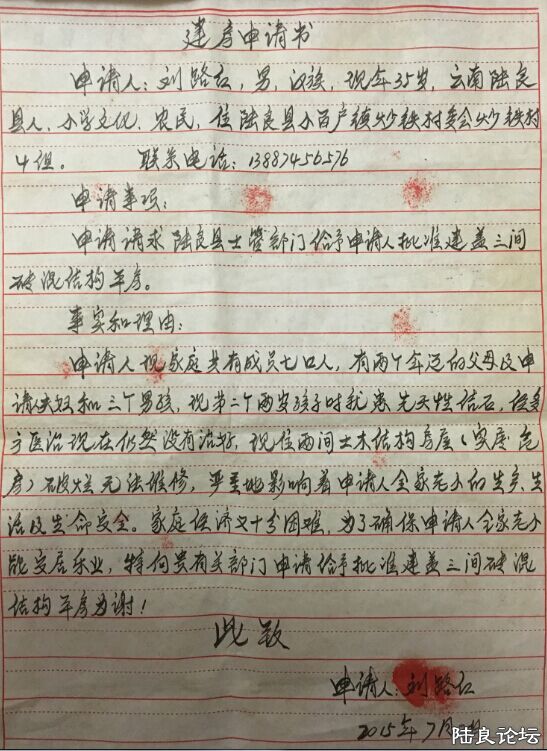 建房申请书
申请人:刘路红,男,汉族,现年35岁,云南陆良
县人,小学文化、农民,住陆良县小百户镇炒铁村委会炒铁村
4组。 联系电话:13887456576
申请事项:
申请请求陆良县土管部门给予申请人批准建盖三间
砖混结构平房。
事实和理由:
申请人现家庭共有成员七口人,有两个年迈的父母及申
请夫妇和三个男孩,现第二个两岁孩子时就患先天性结石,经多
方医治现在仍然没有治好,现住两间土木结构房屋(实属危
房)破烂无法维修,严重地影响着申请人全家老小的生产、生
活及生命安全。家庭经济又十分困难,为了确保申请人全家老小
能安居乐业,特向贵有关部门申请给予批准建盖三间砖混
结构平房为谢!
此致
申请人:刘路红
2015年7月
陆良论坛